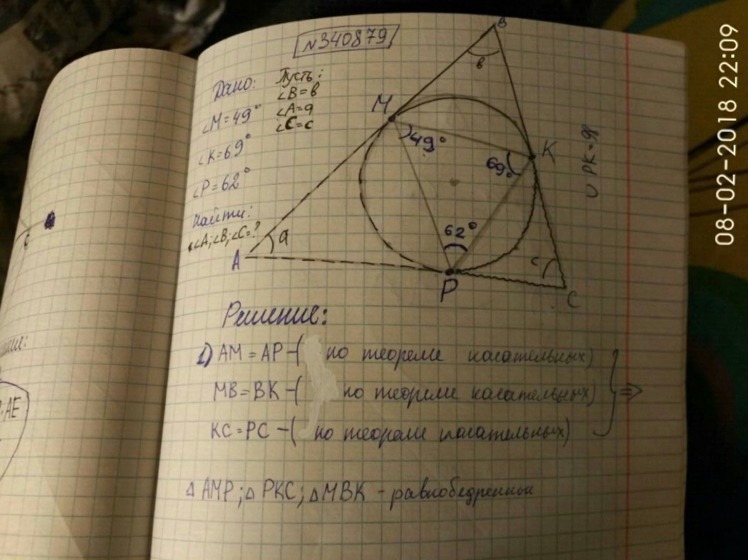 №340879
Дано:
∠M=49°
∠K=69°
∠P=62°
Найти:
∠A;∠B;∠C=?
Пусть:
∠B=в
∠A=a
∠C=c
B
в
M
49°
69°
K
62°
A
a
P
c
C
Решение:
1) AM=AP-( по теореме касательных)
MB=BK-( по теореме касательных) =>
KC=PC-( по теореме касательных)
△AMP;△PKC;△MBK-равнобедренные
08-02-2018 22:09
AE